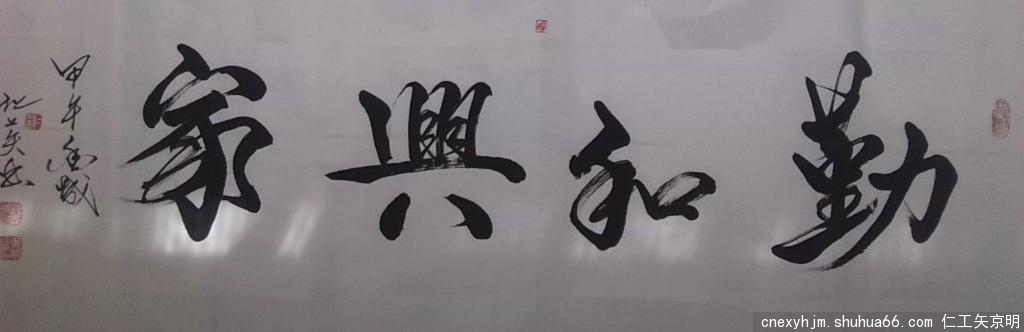 勤和興家
甲午
cnexyhjm.shuhua66.com 仁工矢京明